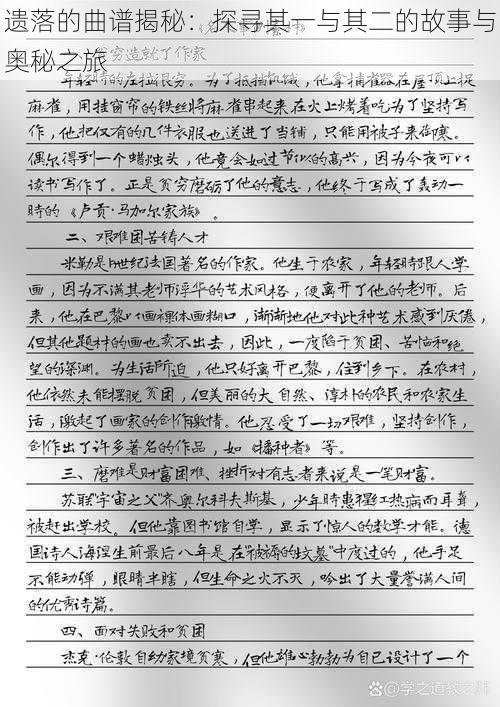 遗落的曲谱揭秘：探寻其一与其二的故事与
奥秘之旅
穷造就了作家
年轻时的左拉很穷。为了抵挡饥饿，他拿捕雀器在屋顶上捉
麻雀，用挂窗帘的铁丝将麻雀串起来在火上烤着吃为了坚持写
作，他把仅有的几件衣服也送进了当铺，只能用被子来御寒。
偶尔得到一个蜡烛头，他竟会如过节似的高兴，因为今夜可以
读书写作了。正是贫穷磨砺了他的意志，他终于写成了轰动一
时的《卢贡·马加尔家族》。
二、艰难困苦铸人才
米勒是19世纪法国著名的作家。他生于农家，年轻时跟人学
画，因为不满其老师浮华的艺术风格，便离开了他的老师。后
来，他在巴黎以画裸体画糊口，渐渐地他对此种艺术感到厌倦，
但其他题材的画也卖不出去，因此，一度陷于贫困、苦恼和绝
望的深渊。为生活所迫，他只好离开巴黎，住到乡下。在农村，
他依然未能摆脱贫困，但美丽的大自然、淳朴的农民和农家生
活，激起了画家的创作激情。他忍受了一切艰难，坚持创作，
创作出了许多著名的作品，如《播种者》等。
三、磨难是财富困难、挫折对有志者来说是一笔财富。
苏联“宇宙之父”齐奥尔科夫斯基，少年时患猩红热病而耳聋，
被赶出学校。但他靠图书馆自学，显示了惊人的数学才能。德
国诗人海涅生前最后八年是在“被褥的坟墓”中度过的，他手足
不能动弹，眼睛半瞎，但生命之火不灭，吟出了大量誉满人间
的优秀诗篇。
四、面对失败和贫困
杰克·伦敦自幼家境贫寒，但他雄心勃勃为自己设计了一个
学之道教之师